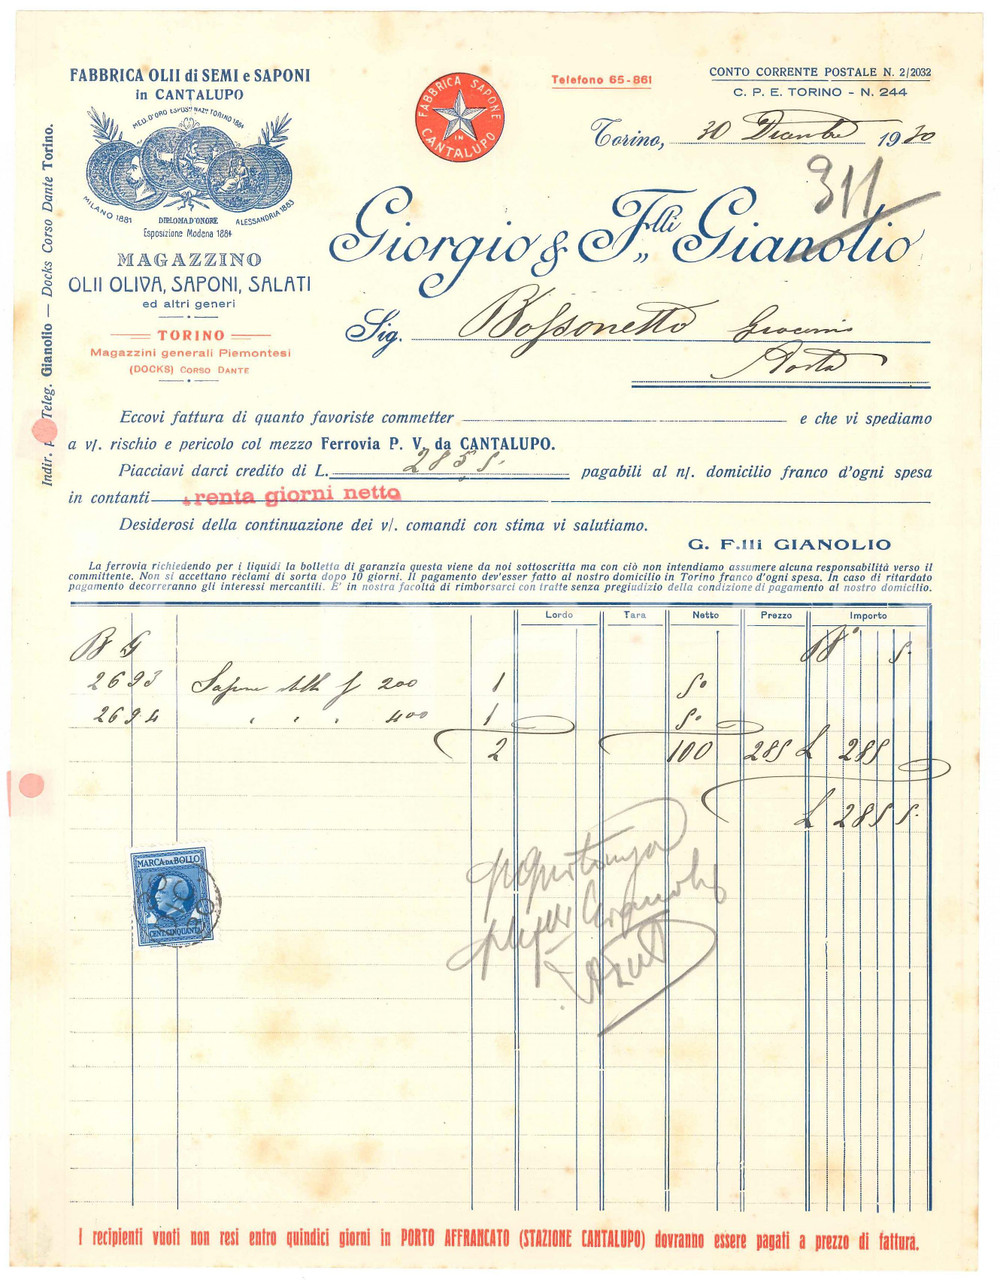 FABBRICA OLII di SEMI e SAPONI
in CANTALUPO
MED. D'ORO ESPOS. NAZ. TORINO 1884
MILANO 1881
DIPLOMA D'ONORE
ALESSANDRIA 1883
Esposizione Modena 1884
MAGAZZINO
OLII OLIVA, SAPONI, SALATI
ed altri generi
TORINO
Magazzini generali Piemontesi
(DOCKS) CORSO DANTE
Indir. Teleg. Gianolio — Docks Corso Dante Torino.
FABBRICA SAPONE
IN
CANTALUPO
Telefono 65-861
CONTO CORRENTE POSTALE N. 2/2032
C. P. E. TORINO - N. 244
Torino, 30 Dicembre 1930
311
Giorgio & F.lli Gianolio
Sig. Bossonetto Giacomo
Aosta
Eccovi fattura di quanto favoriste commetter e che vi spediamo
a v/. rischio e pericolo col mezzo Ferrovia P. V. da CANTALUPO.
Piacciavi darci credito di L. 285 5. pagabili al n/. domicilio franco d'ogni spesa
in contanti trenta giorni netto
Desiderosi della continuazione dei v/. comandi con stima vi salutiamo.
G. F.lli GIANOLIO
La ferrovia richiedendo per i liquidi la bolletta di garanzia questa viene da noi sottoscritta ma con ciò non intendiamo assumere alcuna responsabilità verso il
committente. Non si accettano reclami di sorta dopo 10 giorni. Il pagamento dev'esser fatto al nostro domicilio in Torino franco d'ogni spesa. In caso di ritardato
pagamento decorreranno gli interessi mercantili. E' in nostra facoltà di rimborsarci con tratte senza pregiudizio della condizione di pagamento al nostro domicilio.
Lordo Tara Netto Prezzo Importo
B G
2693 Sapone 200 1 50
2694 " " " 400 1 50
2 100 285 L 285
L 285 5.
MARCA DA BOLLO
CENT. CINQUANTA
I recipienti vuoti non resi entro quindici giorni in PORTO AFFRANCATO (STAZIONE CANTALUPO) dovranno essere pagati a prezzo di fattura.